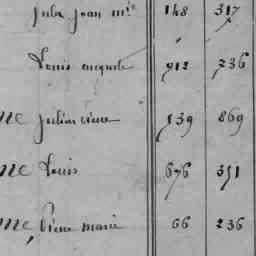 Jean m.ie 148 317
Louis auguste 912 236
ne Julien 139 869
ne Louis 676 351
me, Pierre marie 66 236